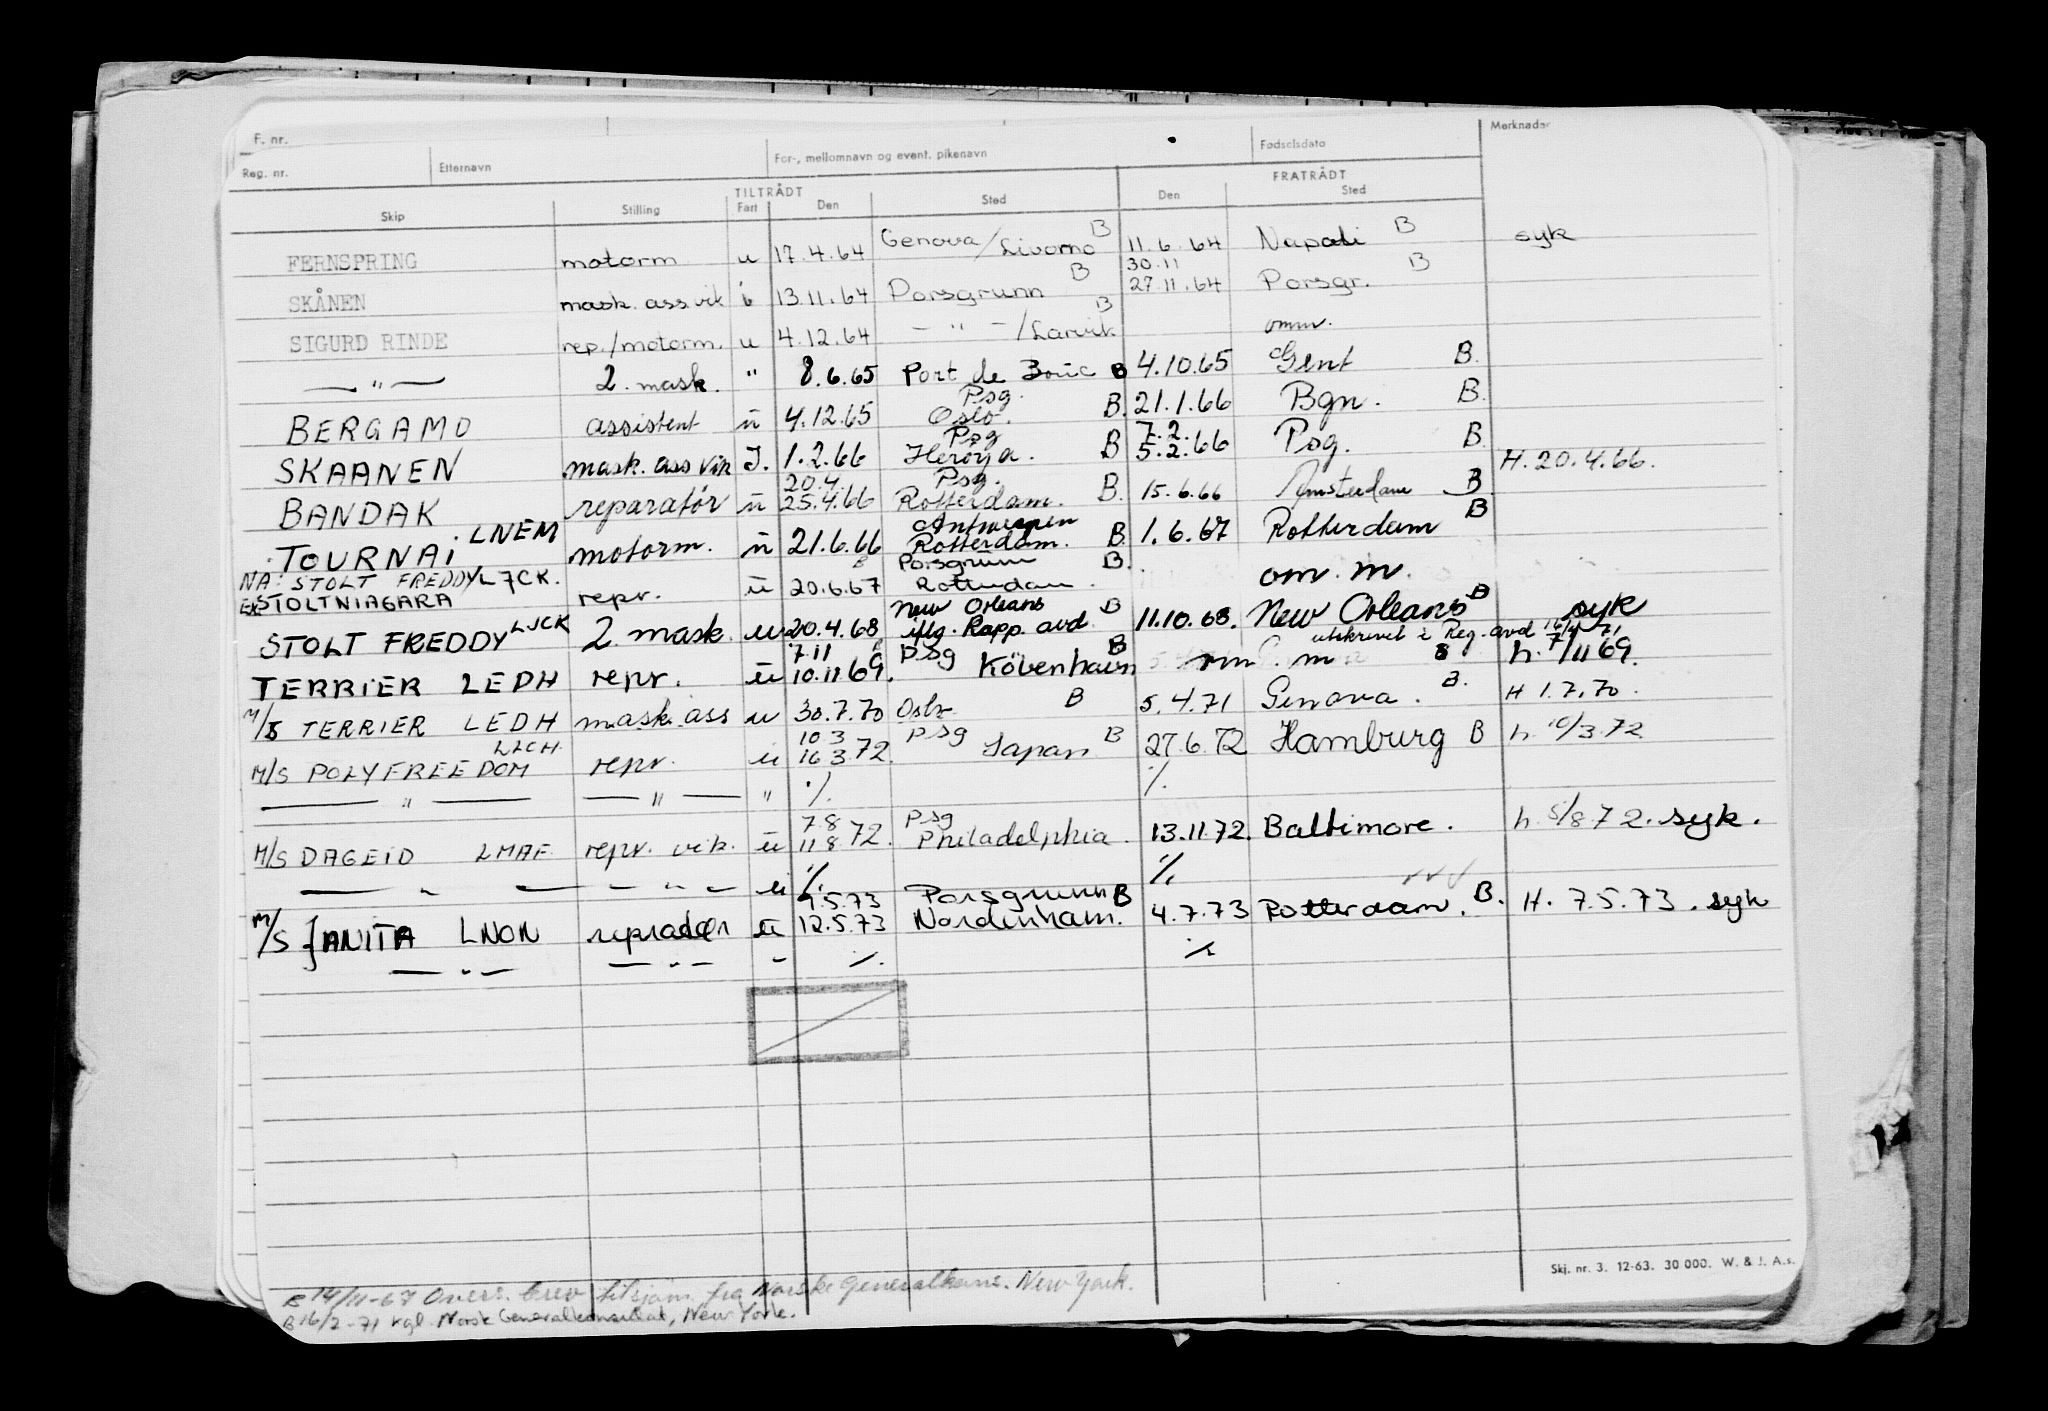 F. nr.
Reg. nr. Etternavn For-, mellomnavn og event. pikenavn Fødselsdato Merknader
TILTRÅDT FRATRÅDT
Skip Stilling Fart Den Sted Den Sted
FERNSPRING motorm u 17.4.64 Genova/Livorno B 11.6.64 Napoli B syk
30.11
SKÅNEN mask. ass. vik i 13.11.64 Porsgrunn B 27.11.64 Porsgr. B
SIGURD RINDE rep./motorm. u 4.12.64 — " —/Larvik B omm.
— " — 2. mask. " 8.6.65 Port de Bouc B 4.10.65 Gent B.
Psg.
BERGAMO assistent u 4.12.65 Oslo. B. 21.1.66 Bgn. B.
Psg 7.2.
SKAANEN mask. ass vik I. 1.2.66 Herøya. B 5.2.66 Psg. B.
20.4. Psg. H. 20.4.66.
BANDAK reparatør u 25.4.66 Rotterdam. B. 15.6.66 Amsterdam B
LNEM Antwerpen
TOURNAI motorm. u 21.6.66 Rotterdam. B. 1.6.67 Rotterdam B
NA: STOLT FREDDY LJCK. Porsgrunn B.
EX STOLTNIAGARA repr. u 20.6.67 Rotterdam. om. m.
New Orleans B
STOLT FREDDY LJCK 2. mask. u 20.4.68 iflg. Rapp. avd. 11.10.68. New Orleans B syk
utskrevet i Reg. avd 16/4 71
7.11 Psg B
TERRIER LEDH repr. u 10.11.69. Köbenhavn om. m B h. 7/11 69.
M/S TERRIER LEDH mask. ass u 30.7.70 Oslo B 5.4.71 Genova. B. H 1.7.70.
LLCH. 10 3 Psg
M/S POLYFREEDOM repr. u 16 3.72. Japan B 27.6.72 Hamburg B h. 10/3.72
— " — — " — " %. %.
7.8 Psg
M/S DAGEID LMAF. repr. vik. u 11 8 72. Philadelphia. 13.11.72. Baltimore. h. 5/8 72. syk.
— " — — " — u %. %.
9.5.73 Porsgrunn B
M/S JANITA LNON repradør u 12.5.73 Nordenham. 4.7.73 Rotterdam. B. H. 7.5.73. syk
— " — — " — " %. %
Skj. nr. 3. 12-63. 30 000. W. & J. A.s.
B 14/11-67 Overs. brev til sjøm. fra Norske Generalkons. New York.
B 16/2-71 kgl. Norsk Generalkonsulat, New York.